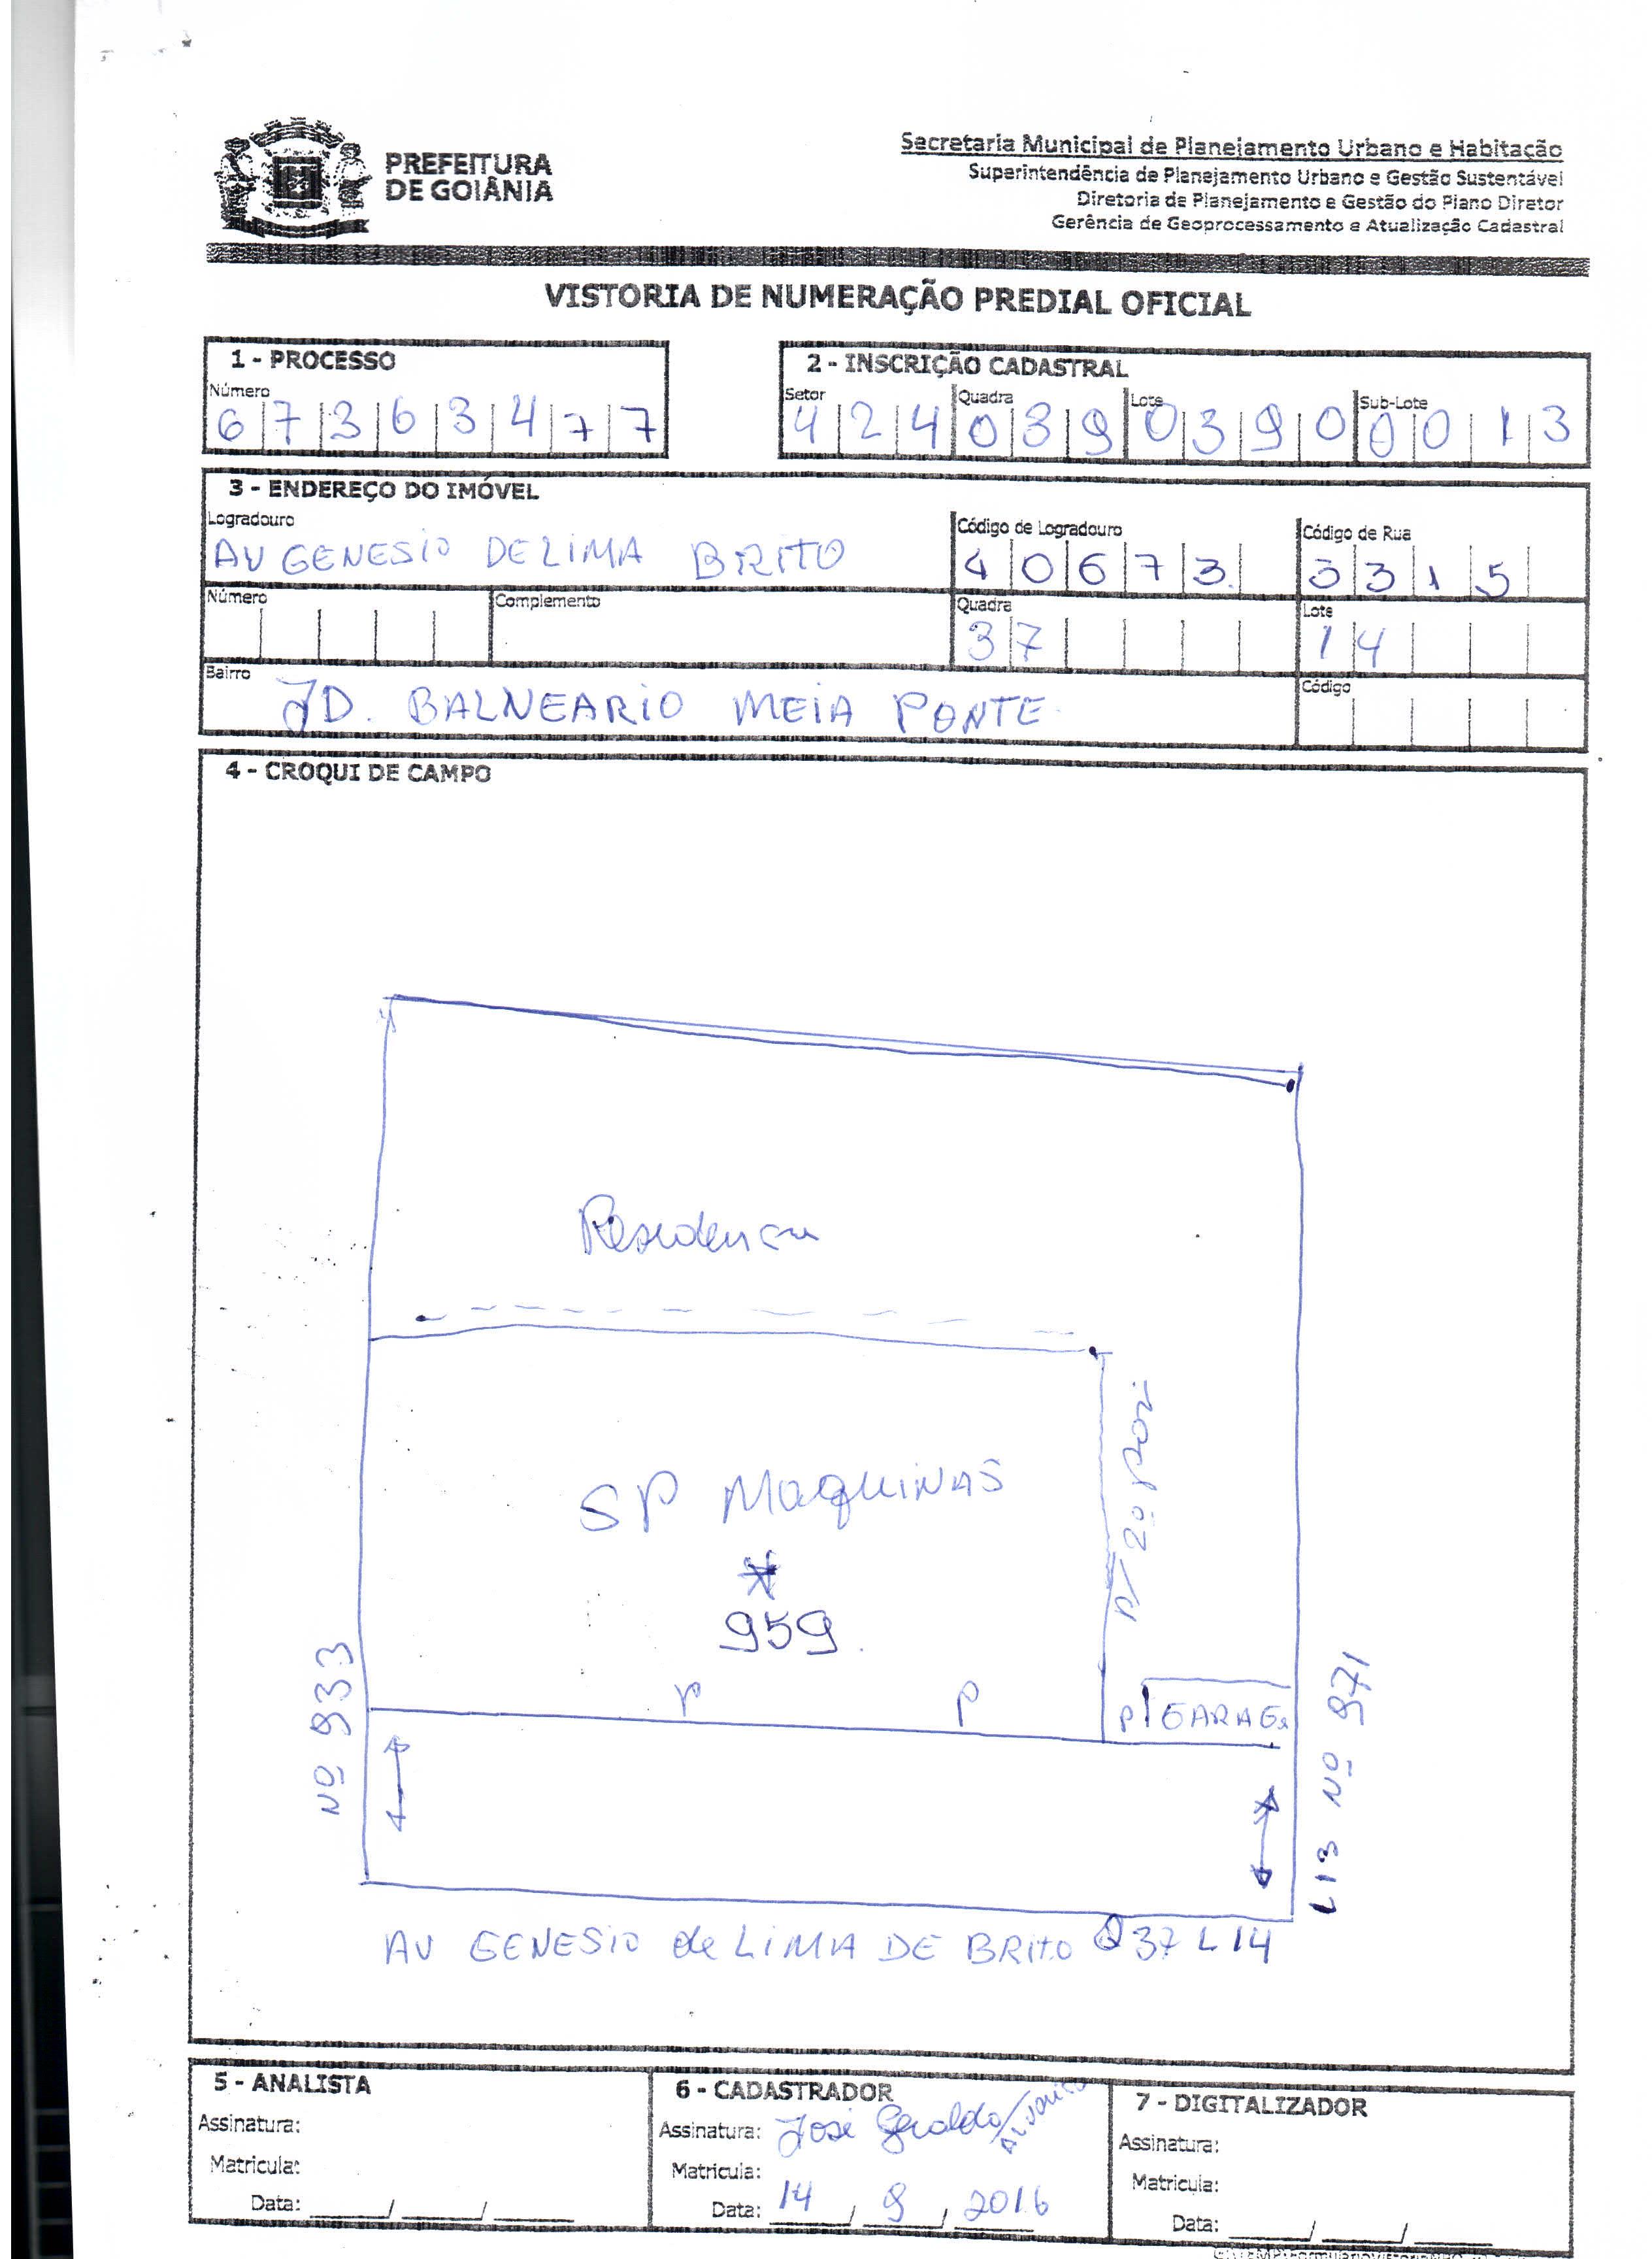 PREFEITURA
DE GOIÂNIA
Secretaria Municipal de Planejamento Urbano e Habitação
Superintendência de Planejamento Urbano e Gestão Sustentável
Diretoria de Planejamento e Gestão do Plano Diretor
Gerência de Geoprocessamento e Atualização Cadastral
VISTORIA DE NUMERAÇÃO PREDIAL OFICIAL
1 - PROCESSO
Número
6 7 3 6 3 4 7 7
2 - INSCRIÇÃO CADASTRAL
Setor Quadra Lote Sub-Lote
4 2 4 0 3 9 0 3 9 0 0 0 1 3
3 - ENDEREÇO DO IMÓVEL
Logradouro Código de Logradouro Código de Rua
AV GENESIO DE LIMA BRITO 4 0 6 7 3 3 3 1 5
Número Complemento Quadra Lote
3 7 1 4
Bairro Código
JD. BALNEARIO MEIA PONTE
4 - CROQUI DE CAMPO
Residencia
SP MAQUINAS
959
P P P GARAGE
Nº 933
L 13 Nº 971
AV GENESIO de LIMA DE BRITO Q 37 L 14
5 - ANALISTA
Assinatura:
Matricula:
Data: / /
6 - CADASTRADOR
Assinatura: José Geraldo
Matricula:
Data: 14 / 9 / 2016
7 - DIGITALIZADOR
Assinatura:
Matricula:
Data: / /